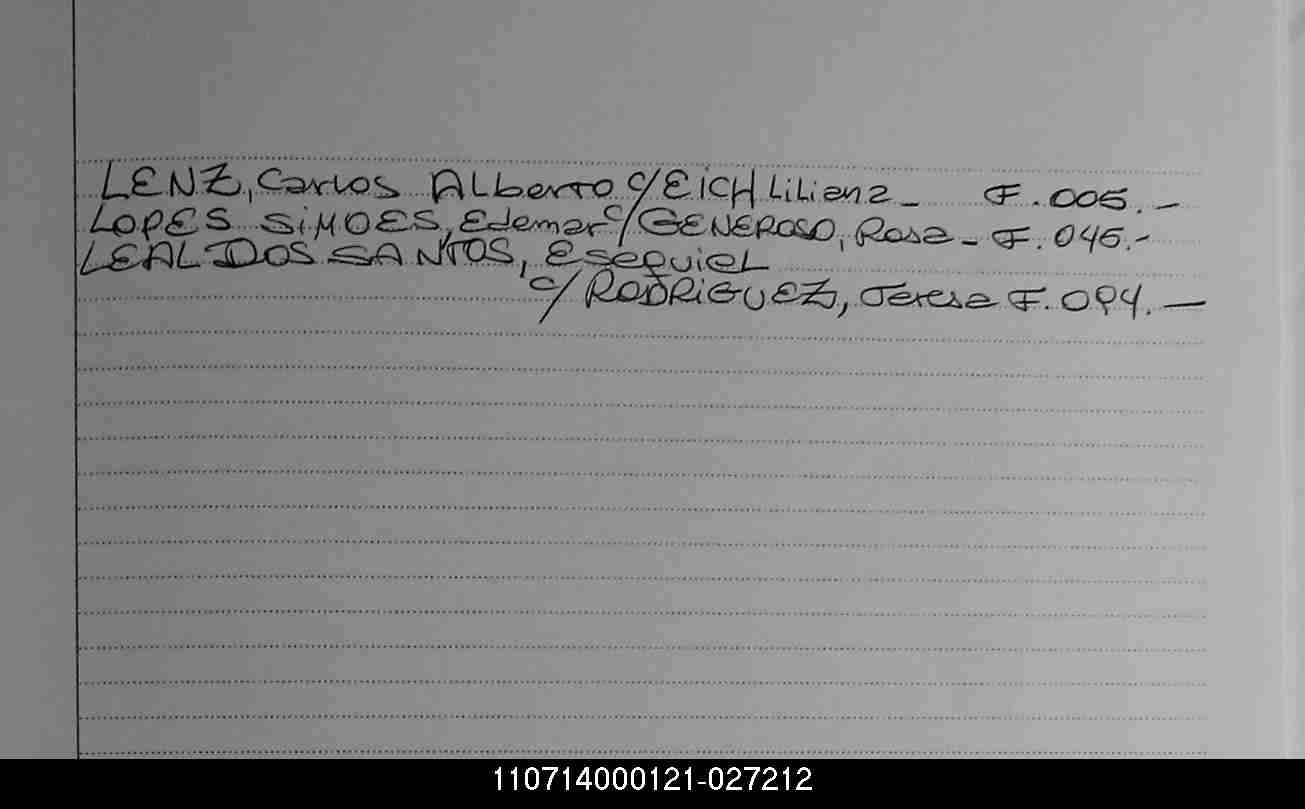 LENZ, Carlos Alberto c/ EiCH Liliana - F. 005.-
LOPES SiMOES, Edemar c/ GENEROSO, Rosa - F. 045.-
LEAL DOS SANTOS, Esequiel
c/ RODRiGUEZ, Teresa F. 094. -
110714000121-027212